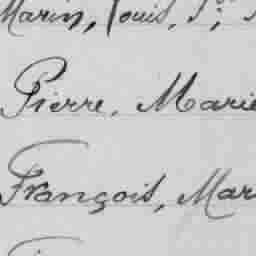 Marin, Louis,
Pierre, Marie
François, Mar